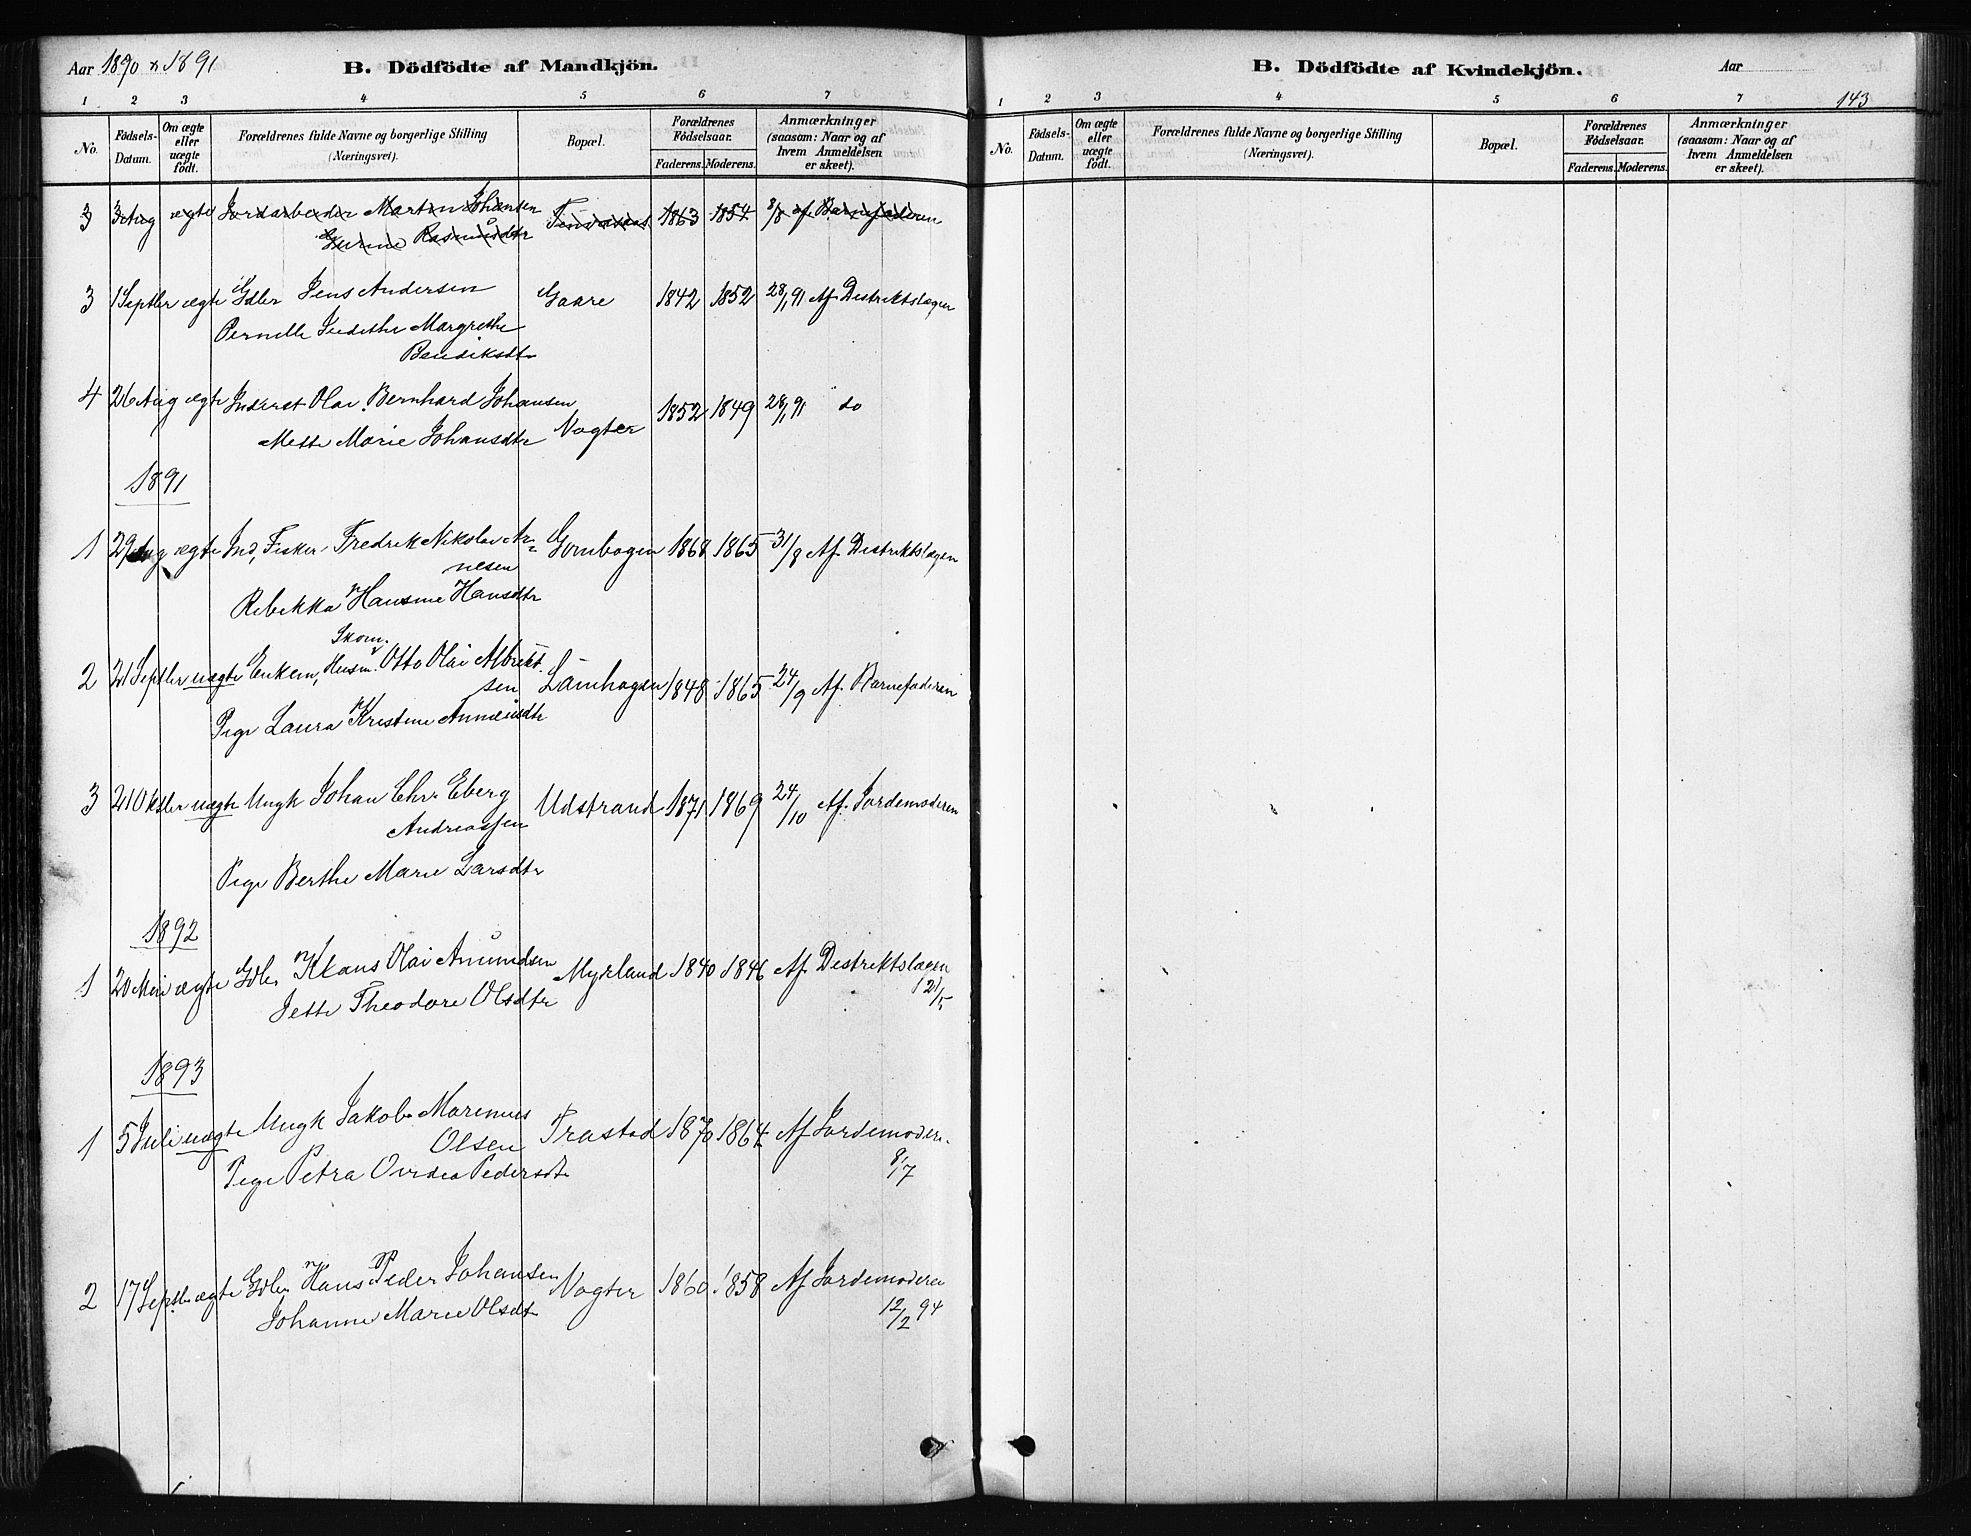 Aar 1890 & 1891
B. Dödfödte af Mandkjön.
1 2 3 4 5 6 7
No. Födsels-Datum. Om ægte eller uægte födt. Forældrenes fulde Navne og borgerlige Stilling (Næringsvei). Bopæl. Forældrenes Födselsaar. Faderens. Moderens. Anmærkninger (saasom: Naar og af hvem Anmeldelsen er skeet).
3 3 Aug ægte Jordarbeider Martin Johansen 1863 1854 8/8 af Barnefaderen
Rasmusdtr
3 1 Septbr ægte Gdbr Jens Andersen Gaare 1842 1852 28/1 91 Af Distriktslægen
Pernille Judithe Margrethe
Bendiksdtr
4 26 Aug ægte Inderst Olai Bernhard Johansen Vogter 1852 1849 28/1 91 do
Mette Marie Johansdtr
1891
1 29 Aug ægte Ind, Fisker Fredrik Nikolai Ar= 1868 1865 31/8 Af Distriktslægen
nesen
Rebekka Hansine Hansdtr
Skom.
2 21 Septbr uægte Enkem, Husm. Otto Olai Albrikt- 1848 1865 24/9 Af Barnefaderen
sen
Pige Laura Kristine
3 21 Oktbr uægte Ungk Johan Chr. Eberg Udstrand 1871 1869 24/10 Af Jordemoderen
Andreassen
Pige Berthe Marie Larsdtr
1892
1 20 Mai ægte Gdbr Klaus Olai Amundsen Myrland 1840 1846 Af Distriktslægen
21/5
Jette Theodore Olsdtr
1893
1 5 Juli uægte Ungk Jakob Marinus Trastad 1870 1864 Af Jordemoderen
Olsen 8/7
Pige Petra Ovidia Pedersdtr
2 17 Septbr ægte Gdbr Hans Peder Johansen Vogter 1860 1858 Af Jordemoderen
Johanne Marie Olsdtr 12/2 94
B. Dödfödte af Kvindekjön.
Aar
1 2 3 4 5 6 7 143
No. Födsels-Datum. Om ægte eller uægte födt. Forældrenes fulde Navne og borgerlige Stilling (Næringsvei). Bopæl. Forældrenes Födselsaar. Faderens. Moderens. Anmærkninger (saasom: Naar og af hvem Anmeldelsen er skeet).